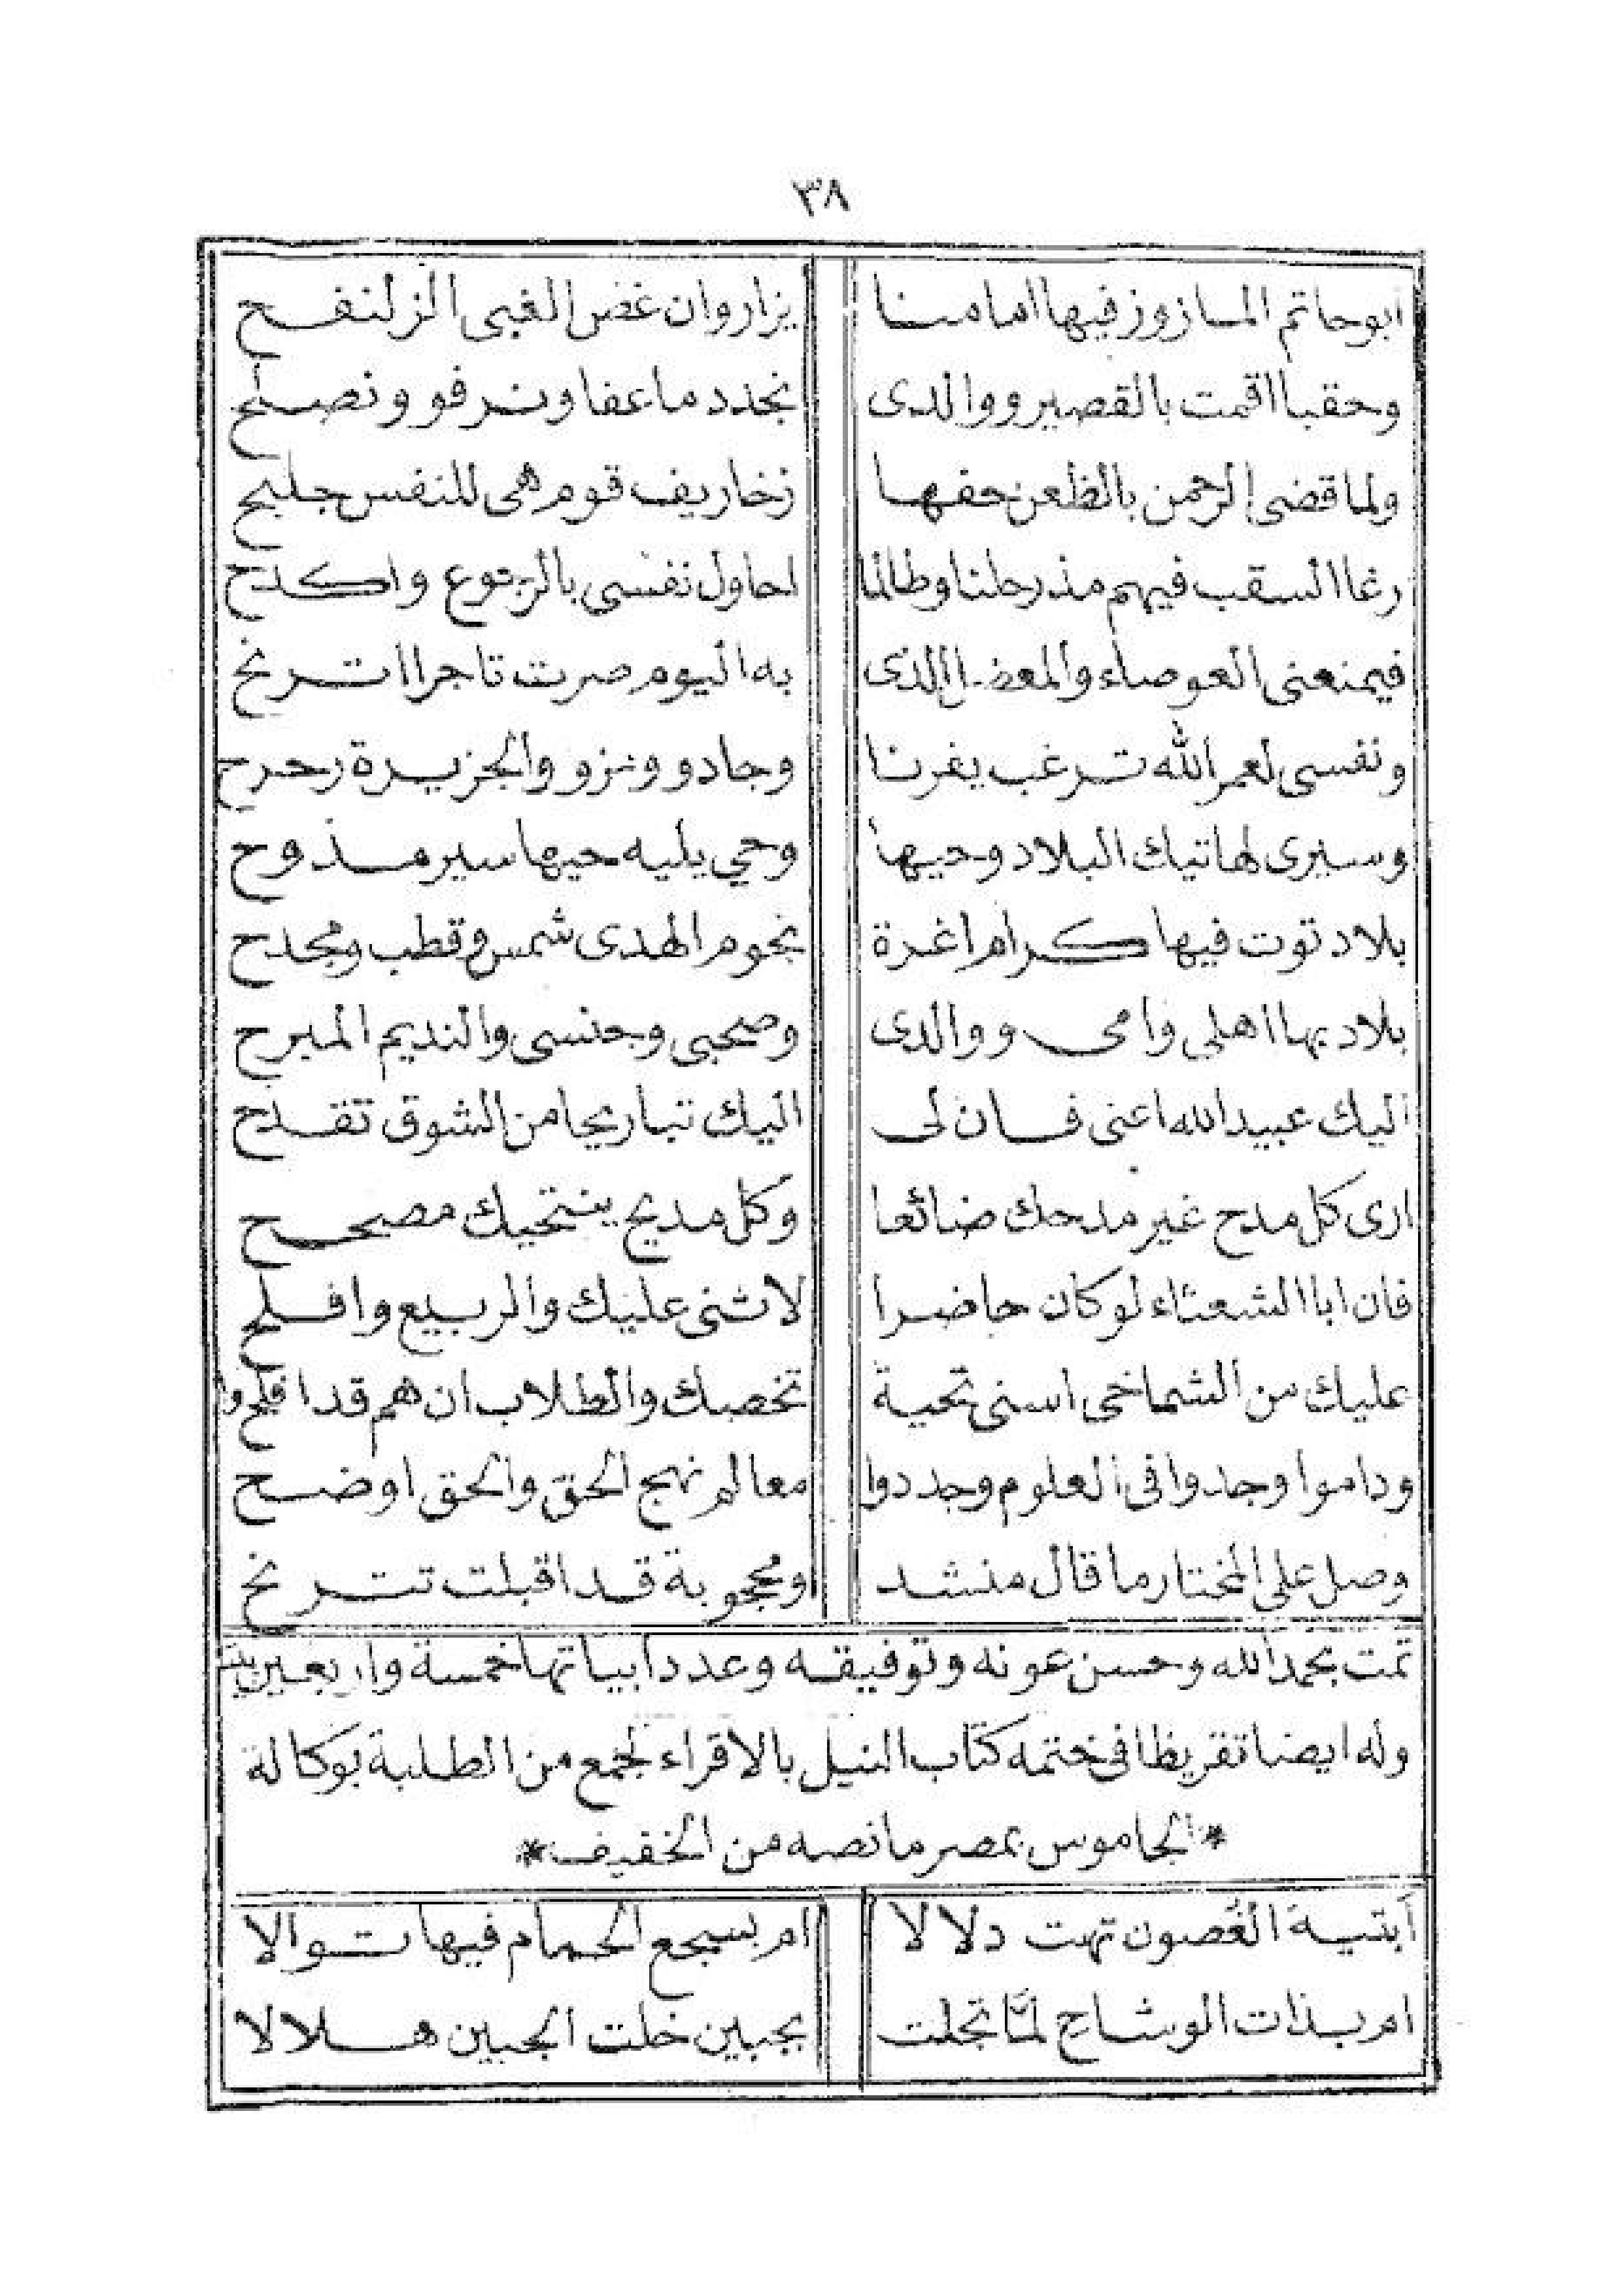 ٣٨
ابوحاتم الملزوز فيها امامنا يزار وان غض الغبى الزلنفح
وحقبا اقمت بالقصير ووالدى نجدد ما عفا ونرفو ونصلح
ولما قضى الرحمن بالظعن حفها زخاريف قوم هى للنفس جليح
رغا السقب فيهم مذ رحلنا وطالما احاول نفسى بالرجوع واكدح
فيمنعنى العوصاء والمعضل الذى به اليوم صرت تاجرا اترنح
ونفسى لعمر الله ترغب يفرنا وجادو ونزو والجزيرة رحرح
وسيرى لهاتيك البلاد وحيها وحي يليه حيها سير مذوح
بلاد توت فيها كرام اغرة نجوم الهدى شمس وقطب ومجدح
بلاد بها اهلى وامى ووالدى وصحبى وجنسى والنديم المبرح
اليك عبيد الله اعنى فان لى اليك تباريحا من الشوق تقدح
ارى كل مدح غير مدحك ضائعا وكل مديح ينتحيك مصبح
فان ابا الشعثاء لو كان حاضرا لاثنى عليك والربيع وافلح
عليك من الشماخى اسنى تحية تخصك والطلاب ان هم قد افلحوا
وداموا وجدوا فى العلوم وجددوا معالم نهج الحق والحق اوضح
وصل على المختار ما قال منشد ومحجوبة قد اقبلت تترنح
تمت بحمد الله وحسن عونه وتوفيقه وعدد ابياتها خمسة واربعين بيتا
وله ايضا تقريظا فى ختمه كتاب النيل بالاقراء لجمع من الطلبة بوكالة
* الجاموس بمصر ما نصه من الخفيف *
أبتيهَ الغُصون تهت دلالا ام بسجع الحمام فيها توالا
ام بذات الوشاحِ لمَّا تجلت بجبين خلت الجبين هلالا